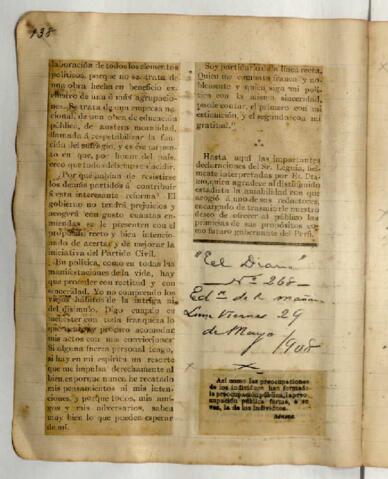 138
laboración de todos los elementos
políticos, porque no se trata de
una obra hecha en beneficio ex-
clusivo de una ó más agrupacio-
nes. Se trata de una empresa na-
cional, de una obra de educación
pública, de austera moralidad,
llamada á respetabilizar la fun-
ción del sufragio, y es ese asun-
to en que, por honor del país,
creo que todos deben coincidir.
¿Por qué habían de resistirse
los demás partidos á contribuir
á esta interesante reforma? El
gobierno no tendrá prejuicios y
acogerá con gusto cuantas en-
miendas se le presenten con el
propósito recto y bien intencio-
nado de acertar y de mejorar la
iniciativa del Partido Civil.
En política, como en todas las
manifestaciones de la vida, hay
que proceder con rectitud y con
sinceridad. Yo no comprendo los
viejos hábitos de la intriga ni
del disimulo. Digo cuanto es
menester con toda franqueza lo
que siento y procuro acomodar
mis actos con mis convicciones.
Si alguna fuerza personal tengo,
si hay en mi espíritu un resorte
que me impulsa derechamente al
bien es porque nunca he recatado
mis pensamientos ni mis inten-
ciones, y porque todos, mis ami-
gos y mis adversarios, saben
muy bien lo que pueden esperar
de mí.
Soy partidario de la línea recta.
Quien me combata franca y no-
blemente y quien siga mi polí-
tica con la misma sinceridad,
puede contar, el primero con mi
estimación, y el segundo con mi
gratitud."
Hasta aquí las importantes
declaraciones del Sr. Leguía, fiel-
mente interpretadas por EL DIA-
RIO, quien agradece al distinguido
estadista la amabilidad con que
acogió á uno de sus redactores,
encargado de transmitirle nuestro
deseo de ofrecer al público las
primicias de sus propósitos co-
mo futuro gobernante del Perú.
"El Diario"
Nº 268
Edⁿ de la mañana
Lima Viernes 29
de Mayo
1908
Así como las preocupaciones
de los individuos han formado
la preocupación pública, la preo-
cupación pública forma, á su
vez, la de los individuos.